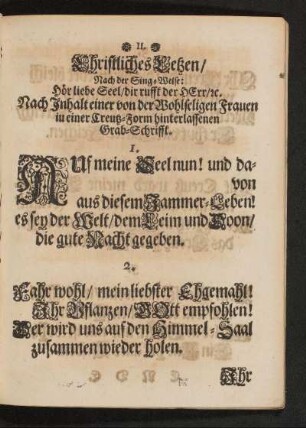 II.
Christliches Letzen/
Nach der Sing-Weise:
Hör liebe Seel/dir rufft der HErr/ꝛc.
Nach Inhalt einer von der Wohlseligen Frauen
in einer Creutz-Form hinterlassenen
Grab-Schrifft.
1.
AUf meine Seel nun! und da-
von
aus diesem Jammer-Leben!
es sey der Welt/dem Leim und Toon/
die gute Nacht gegeben.
2.
Fahr wohl/ mein liebster Ehgemahl!
Ihr Pflanzen/ GOtt empfohlen!
Der wird uns auf den Himmel-Saal
zusammen wieder holen.
Ihr